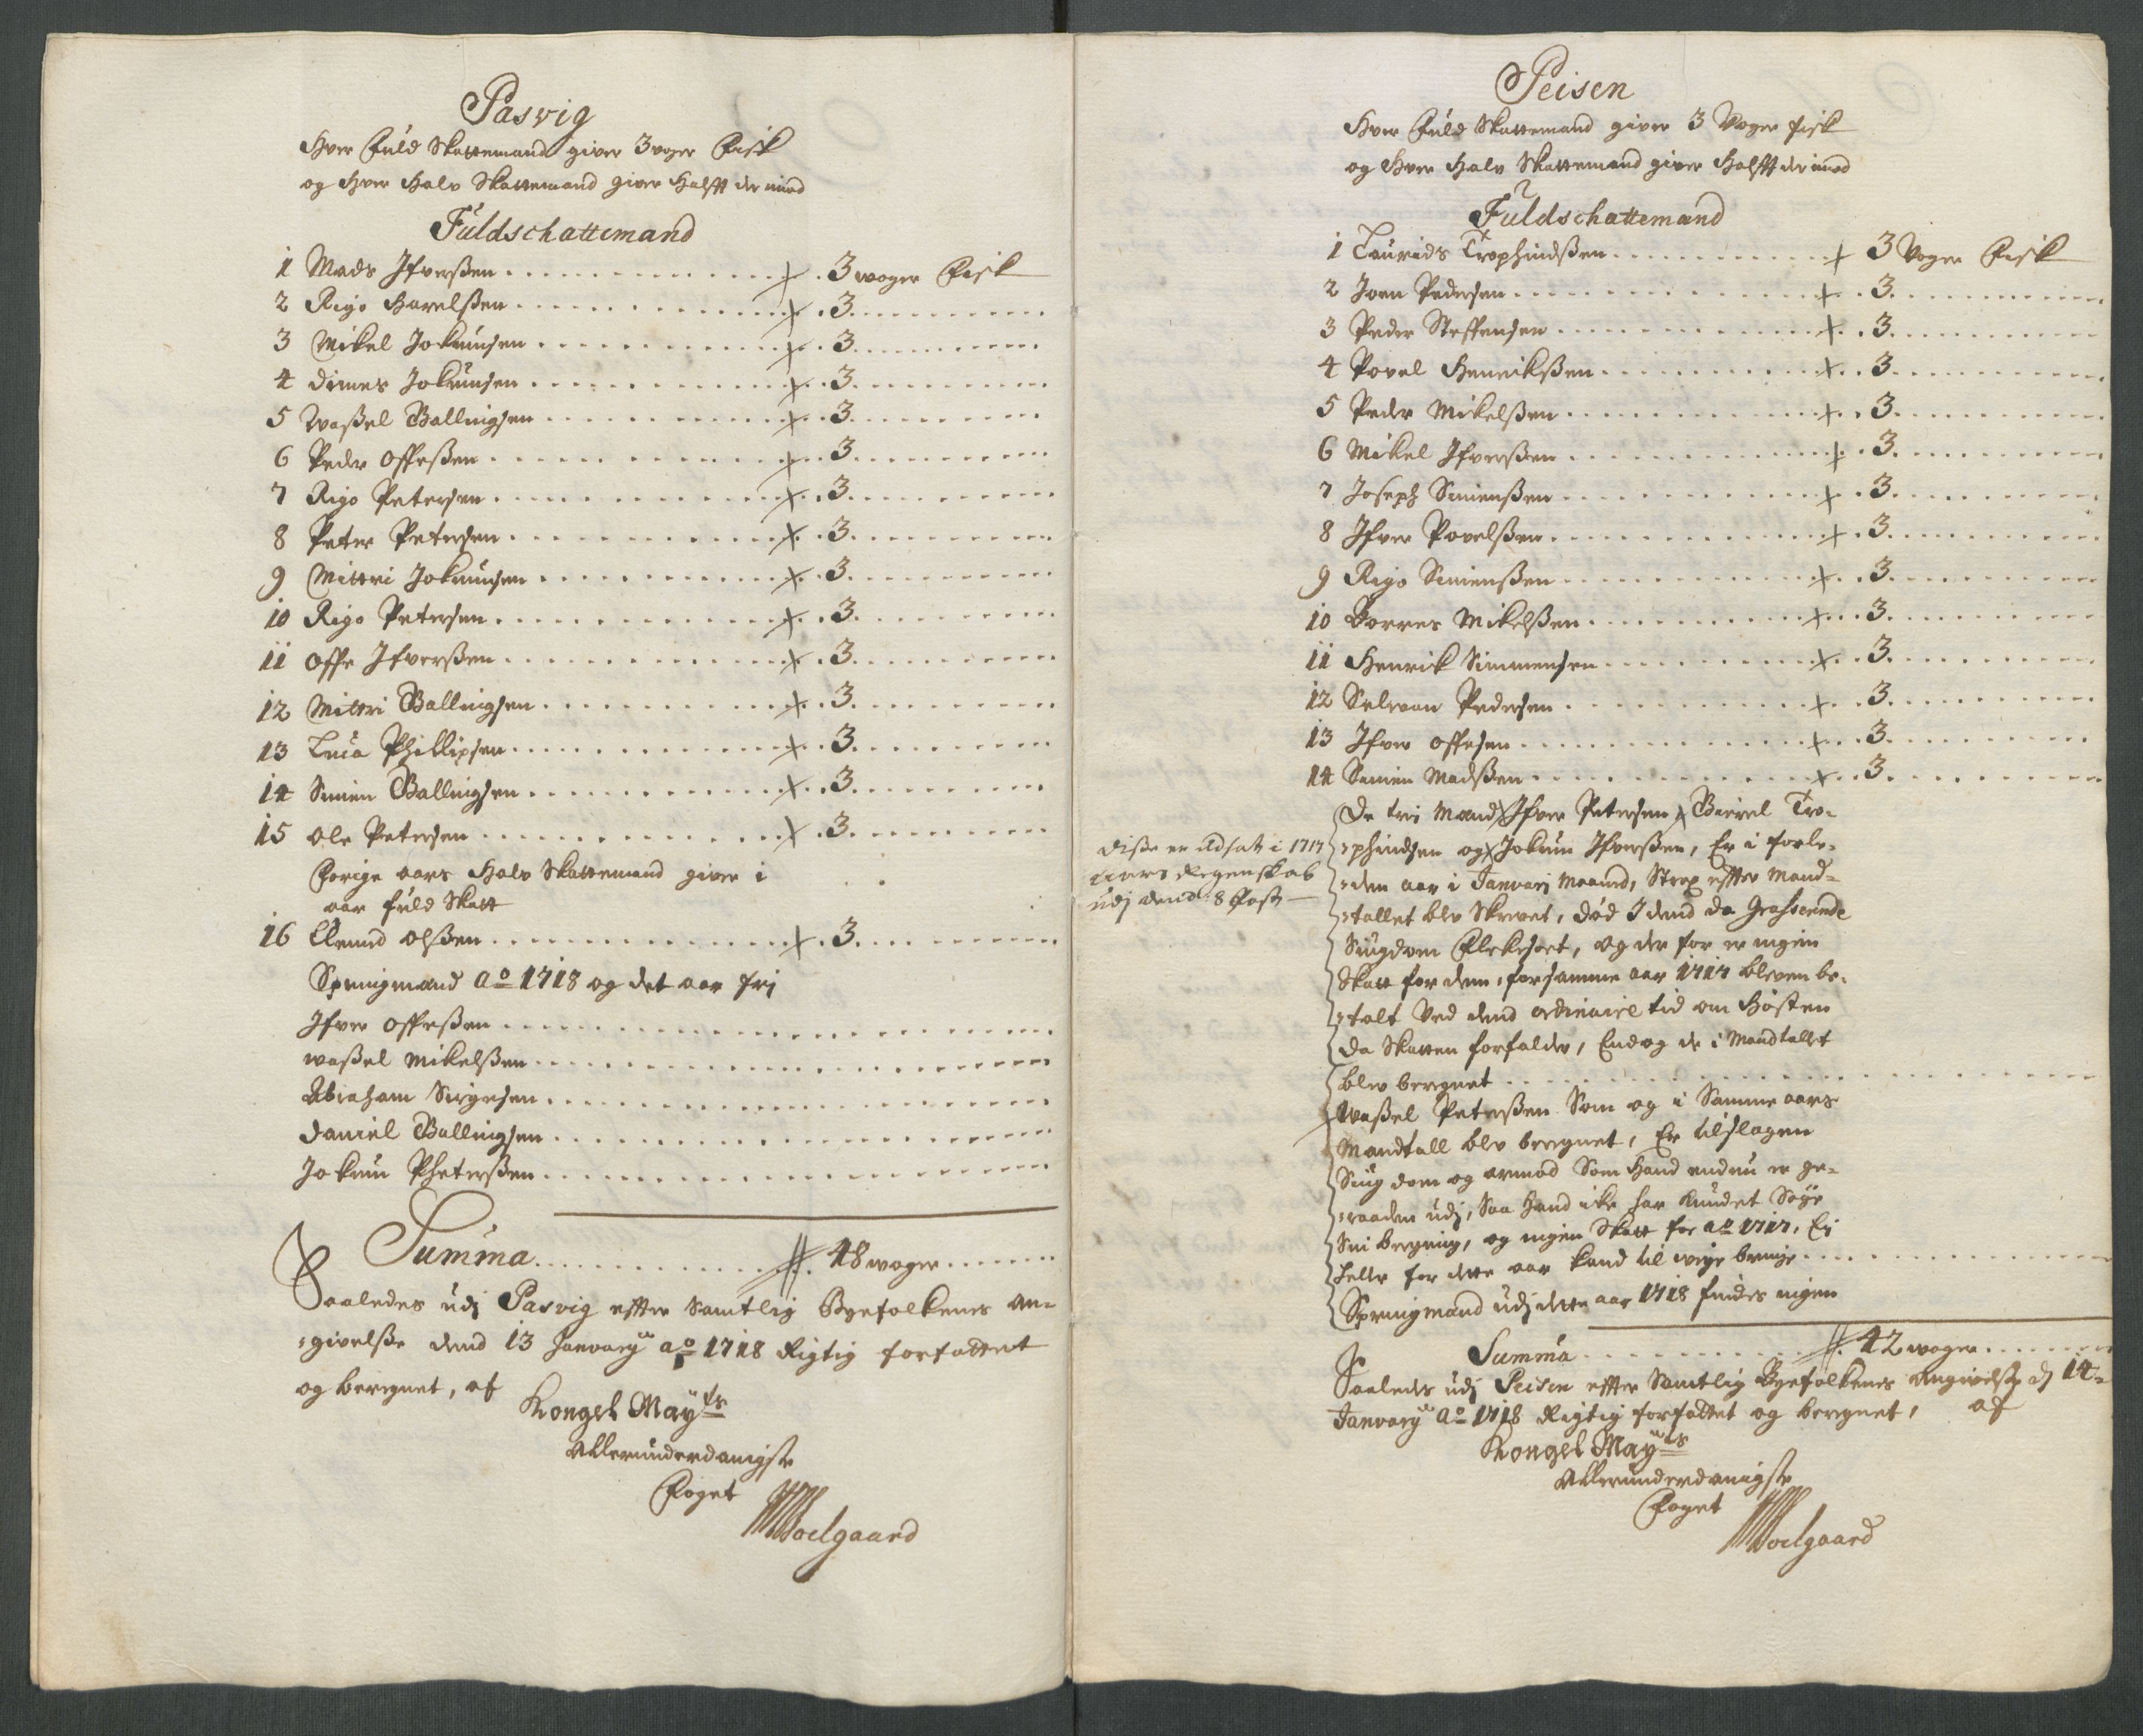 Pasvig
Hver Fuld Skattemand giver 3 voger Fisk
og Hver Halv Skattemand giver Halfft der imod
Fuldschattemand
1 Mads Ifverßen . . . 3 woger Fisk
2 Rigo Havelßen . . . 3
3 Mikel Jokumsen . . . 3
4 Dimes Jokumsen . . . 3
5 Waßel Ballingsen . . . 3
6 Peder Offeßen . . . 3
7 Rigo Petersen . . . 3
8 Peter Petersen . . . 3
9 Mittri Jokumsen . . . 3
10 Rigo Petersen . . . 3
11 Offe Ifverßen . . . 3
12 Mittri Ballingsen . . . 3
13 Luca Phillipsen . . . 3
14 Simen Ballingsen . . . 3
15 Ole Petersen . . . 3
Forige aars Halv Skattemand giver i
aar fuld Skatt
16 Olßen . . . 3
Springmand Ao 1718 og det aar frj
Ifver Offeßen
Waßel Mikelßen
Abraham Sirgesen
Daniel Ballingsen
Jokum Pheterßen
Summa . . . 48 woger
Saaledes udj Pasvig effter Samtlig Byefolkenes An-
givelße dend 13 January ao 1718 Rigtig forfattet
og beregnet, af
Kongel Mayts
Allerunderdanigste
Foget
Soelgaard
Peisen
Hver Fuld Skattemand giver 3 Voger fisk
og Hver Halv Skattemand giver Halfft der imod
Fuldschattemand
1 Laurids Trophindßen . . . 3 Voger Fisk
2 Joen Pedersen . . . 3
3 Peder Steffensen . . . 3
4 Povel Henrikßen . . . 3
5 Peder Mikelßen . . . 3
6 Mikel Ifverßen . . . 3
7 Joseph Simenßen . . . 3
8 Ifver Povelßen . . . 3
9 Rigo Simenßen . . . 3
10 Borres Mikelßen . . . 3
11 Henrik Simmensen . . . 3
12 Selivan Pedersen . . . 3
13 Ifver Offesen . . . 3
14 Simen Madßen . . . 3
De tri Mand Ifver Petersen, Tro-
phindsen og Jokum Ifverßen, Er i forle-
den aar i Januarj Maaned, Strax effter Mand-
tallet blev Skrevet, død I dend da Grasserende
Siugdom, og der for er ingen
Skatt for dem, for samme aar 1717 bleven be-
talt Ved dend ordinaire tid om Høsten
da Skatten forfalder, Endog de i Mandtallet
blev beregnet
Waßel Peterßen Som og i Samme aars
Mandtall blev beregnet, Er tilslagen
Siugdom og armod Som Hand endnu er ge-
raaden udj, Saa Hand icke har kundet Søge
Sin bergning, og ingen Skatt for ao 1717, Ej
heller for dette aar kand til veye bringe
Springmand udj dette aar 1718 findes ingen
Diße er Udsatz i 1717
aars Regenskab
udj dend 8 Post
Summa . . . 42 woger
Saaledes udj Peisen effter Samtlig Byefolkenes Angivelße d 14
January Ao 1718 Rigtig forfattet og beregnet, af
Kongel Mayts
Allerunderdanigste
Foget
Soelgaard